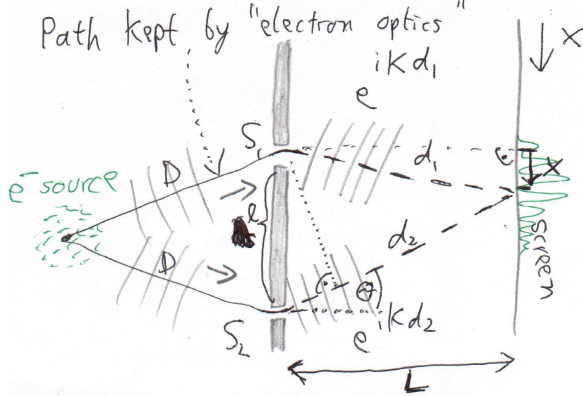 Path kept by "electron optics"
iKd₁
e
x
S₁
d₁
ε
x
e⁻ source
D
l
d₂
screen
D
θ
iKd₂
e
S₂
L